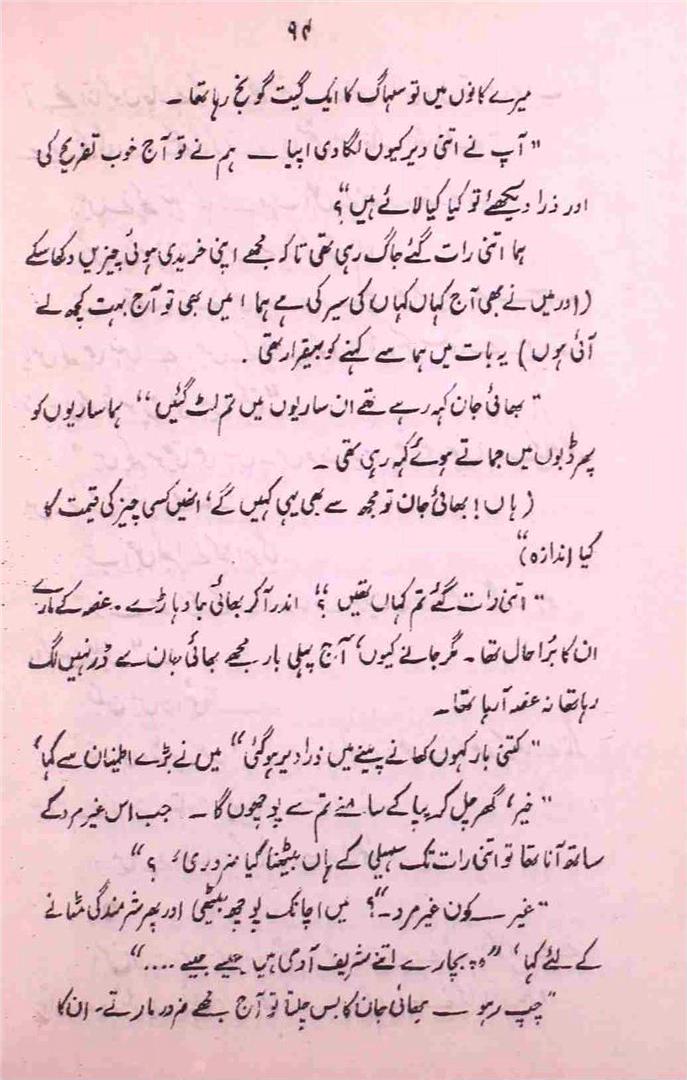 ۹۴
میرے کانوں میں تو سہاگ کا ایک گیت گونج رہا تھا ۔
"آپ نے اتنی دیر کیوں لگا دی اپیا — ہم نے تو آج خوب تفریح کی
اور ذرا دیکھئے تو کیا کیا لائے ہیں"؟
ہما اتنی رات گئے جاگ رہی تھی تاکہ مجھے اپنی خریدی ہوئی چیزیں دکھا سکے
(اور میں نے بھی آج کہاں کہاں کی سیر کی ہے ہما ! میں بھی تو آج بہت کچھ لے
آئی ہوں) یہ بات میں ہما سے کہنے کو بیقرار تھی ۔
"بھائی جان کہہ رہے تھے ان ساریوں میں تم لٹ گئیں" ہما ساریوں کو
پھر ڈبوں میں جماتے ہوئے کہہ رہی تھی ۔
(ہاں! بھائی جان تو مجھ سے بھی یہی کہیں گے، انہیں کسی چیز کی قیمت کا
کیا اندازہ)"
"اتنی رات گئے تم کہاں تھیں ؟" اندر آ کر بھائی جان دہاڑے ۔ غصہ کے مارے
ان کا برا حال تھا ۔ مگر جانے کیوں، آج پہلی بار مجھے بھائی جان سے ڈر نہیں لگ
رہا تھا نہ غصہ آ رہا تھا ۔
"کتنی بار کہوں کھانے پینے میں ذرا دیر ہو گئی" میں نے بڑے اطمینان سے کہا،
"خیر، گھر چل کر پپا کے سامنے تم سے پوچھوں گا ۔ جب اس غیر مرد کے
ساتھ آنا تھا تو اتنی رات تک سہیلی کے ہاں بیٹھنا کیا ضروری ؟"
"غیر — کون غیر مرد ۔"؟ میں اچانک پوچھ بیٹھی اور پھر شرمندگی مٹانے
کے لئے کہا، "وہ بچارے اتنے شریف آدمی ہیں جیسے جیسے ...."
"چپ رہو — بھائی جان کا بس چلتا تو آج مجھے ضرور مارتے ۔ ان کا